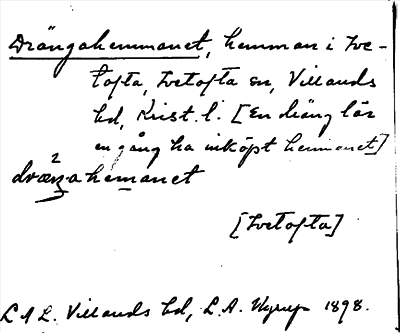 Drängahemmanet, hemman i Ive-
tofta, Ivetofta sn, Villands
hd, Krist. l. [En dräng lär
en gång ha inköpt hemmanet]
dræŋahemanet
[Ivetofta]
L A L. Villands hd, L. A. Nyrup 1898.